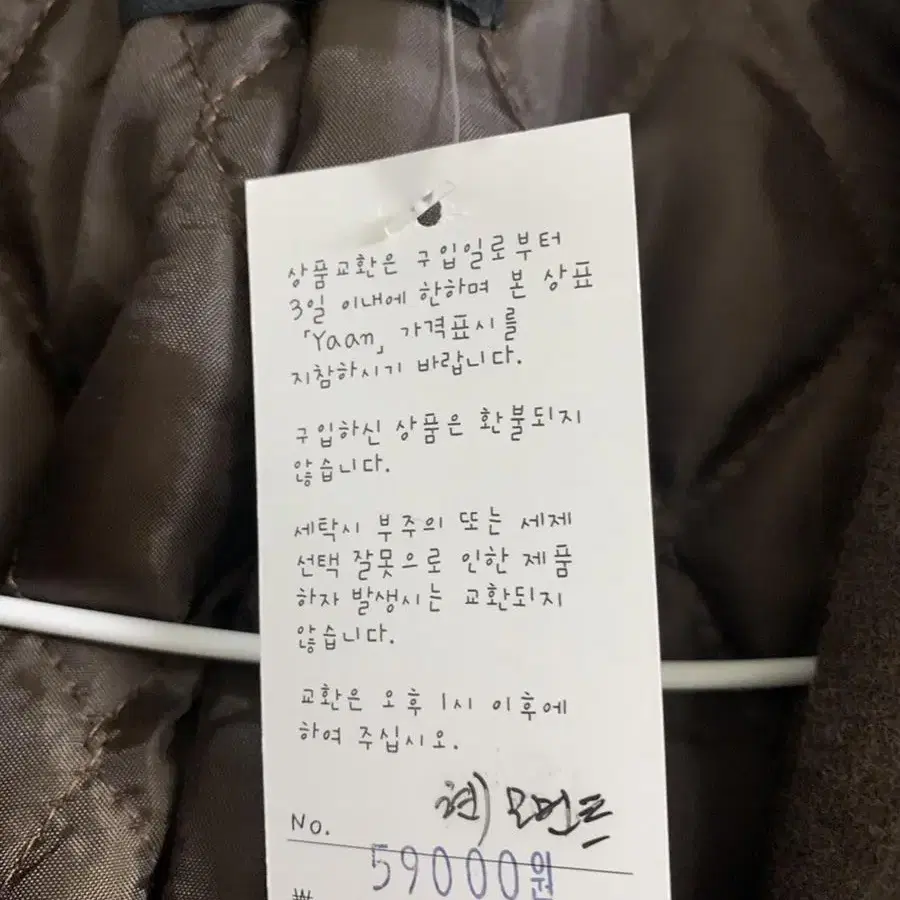 상품교환은 구입일로부터
3일 이내에 한하며 본 상표
「Yaan」 가격표시를
지참하시기 바랍니다.
구입하신 상품은 환불되지
않습니다.
세탁시 부주의 또는 세제
선택 잘못으로 인한 제품
하자 발생시는 교환되지
않습니다.
교환은 오후 1시 이후에
하여 주십시오.
모먼트
No.
59000원
₩